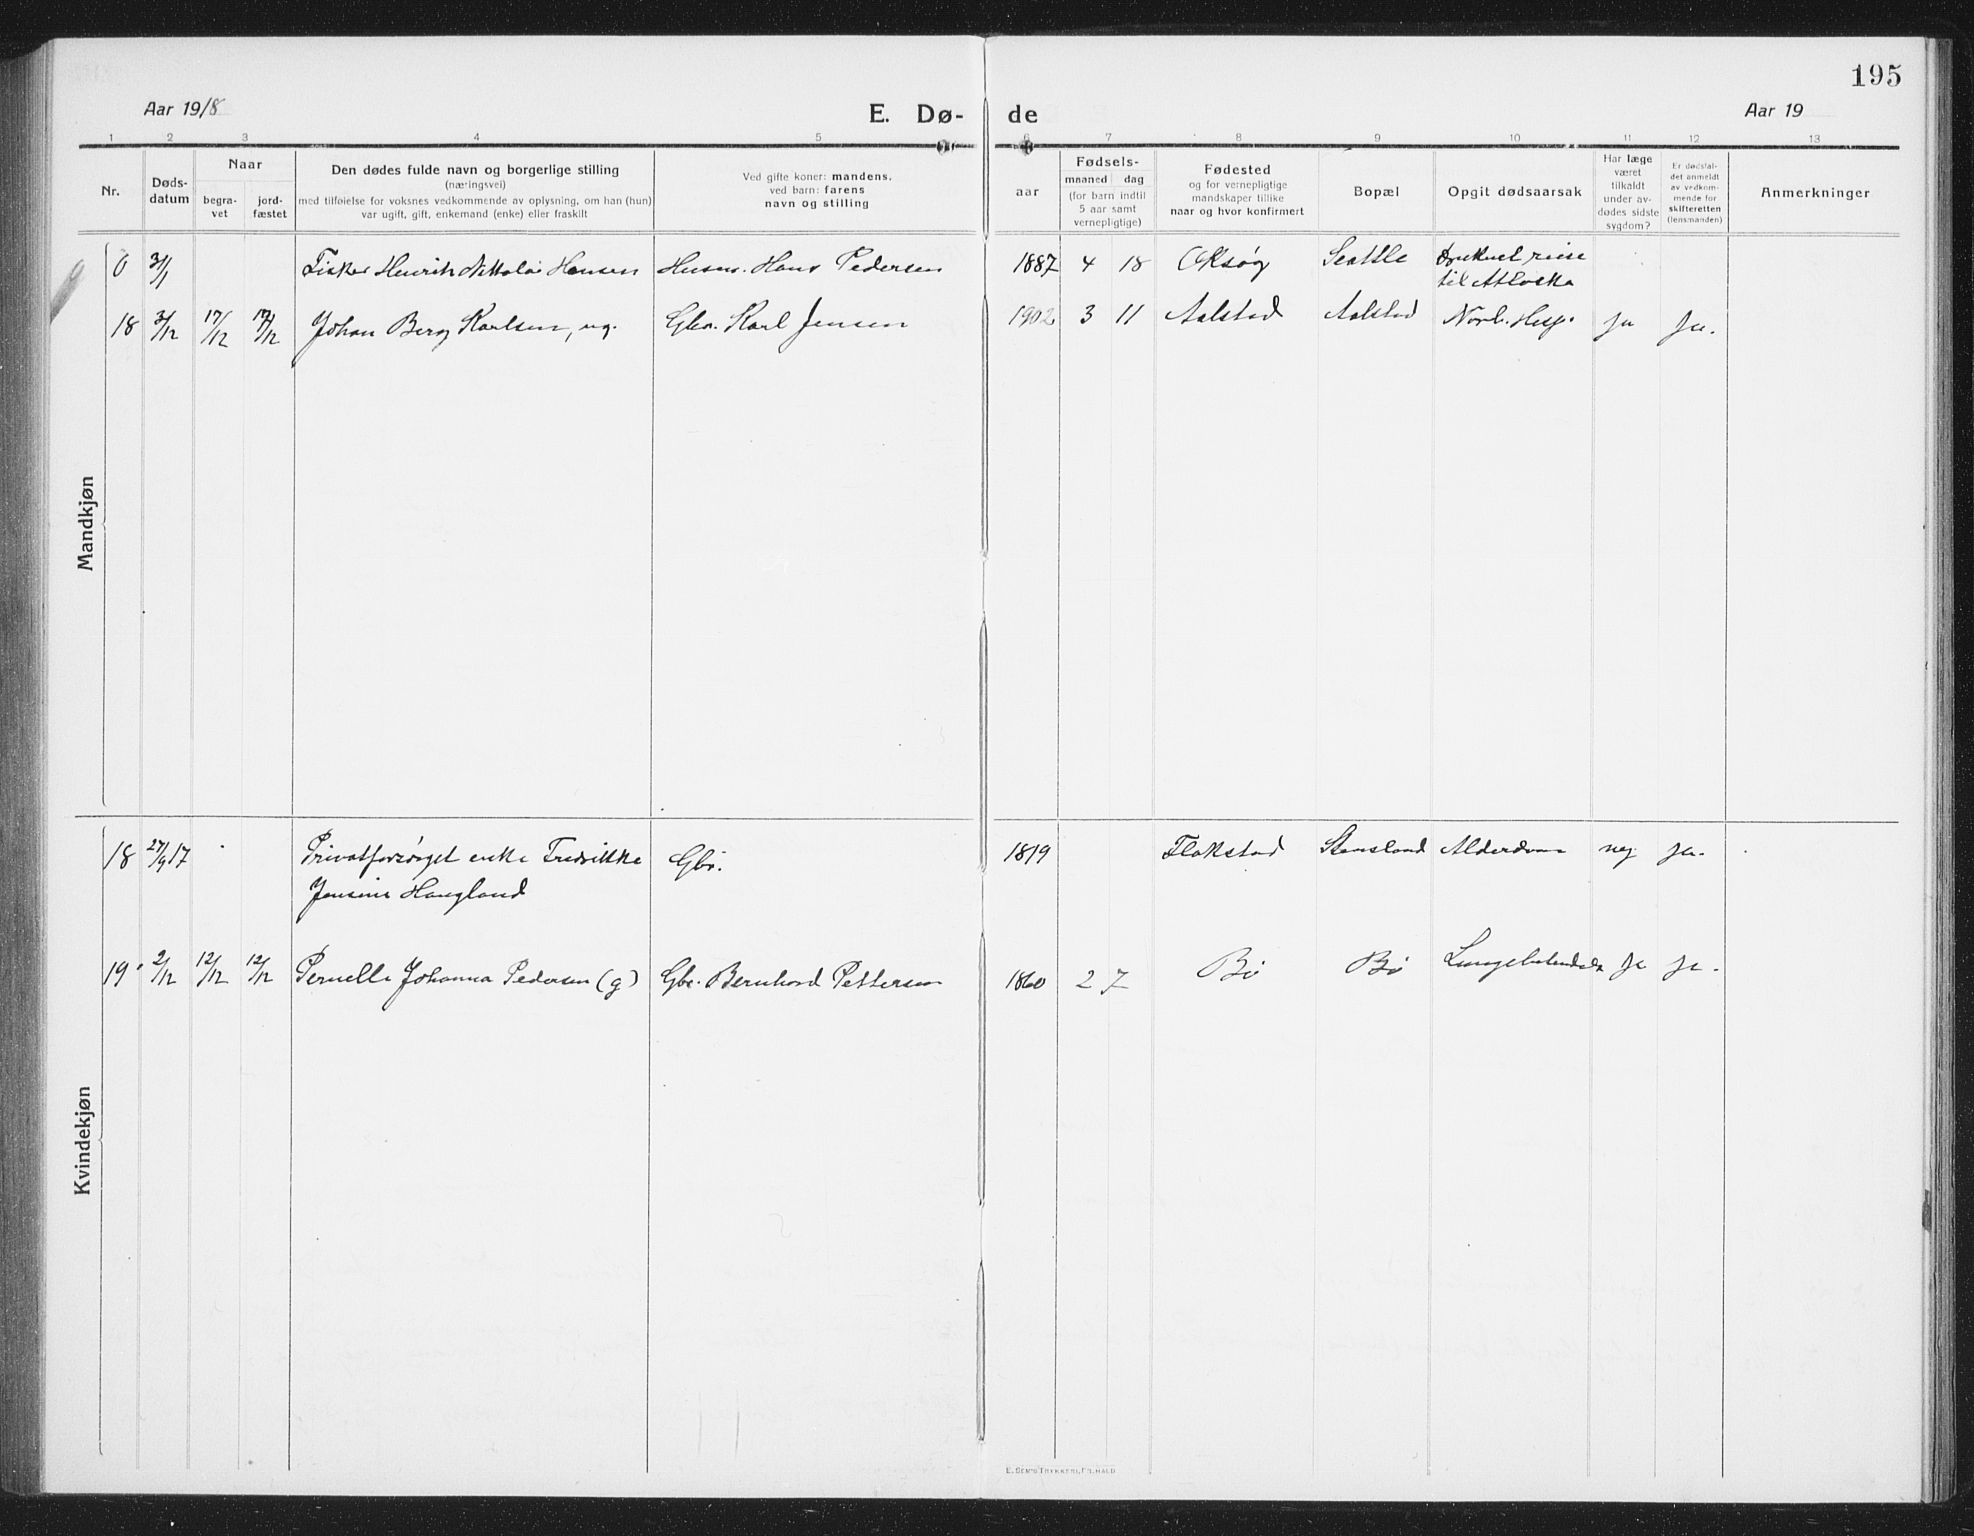 195
Aar 1918
E. Dø-
de
Aar 19
1 2 3 4 5 6 7 8 9 10 11 12 13
Nr.
Døds-
datum
Naar
begra-
vet
jord-
fæstet
Den dødes fulde navn og borgerlige stilling
(næringsvei)
med tilføielse for voksnes vedkommende av oplysning, om han (hun)
var ugift, gift, enkemand (enke) eller fraskilt
Ved gifte koner: mandens,
ved barn: farens
navn og stilling
aar
Fødsels-
maaned dag
(for barn indtil
5 aar samt
vernepligtige)
Fødested
og for vernepligtige
mandskaper tillike
naar og hvor konfirmert
Bopæl
Opgit dødsaarsak
Har læge
været
tilkaldt
under av-
dødes sidste
sygdom?
Er dødsfal-
det anmeldt
av vedkom-
mende for
skifteretten
(lensmanden)
Anmerkninger
Mandkjøn
0 3/1 Fisker Henrik Nikolai Hansen Husm. Hans Pedersen 1887 4 18 Seattle Druknet reise
til Alaska
18 3/12 17/12 17/12 Johan Berg Karlsen, ug. Gbr. Karl Jensen 1902 3 11 Aalstad Aalstad Norl. Hosp. ja ja.
Kvindekjøn
18 27/9 17 Privatforsørget enke Fredrikke Gbr. 1819 Flakstad Stensland Alderdom nej ja.
Jensine Haugland
19 2/12 12/12 12/12 Pernelle Johanna Pedersen (g) Gbr. Bernhard Pettersen 1860 2 7 Bø Bø ja ja.
E. SEM'S TRYKKERI, FR.HALD